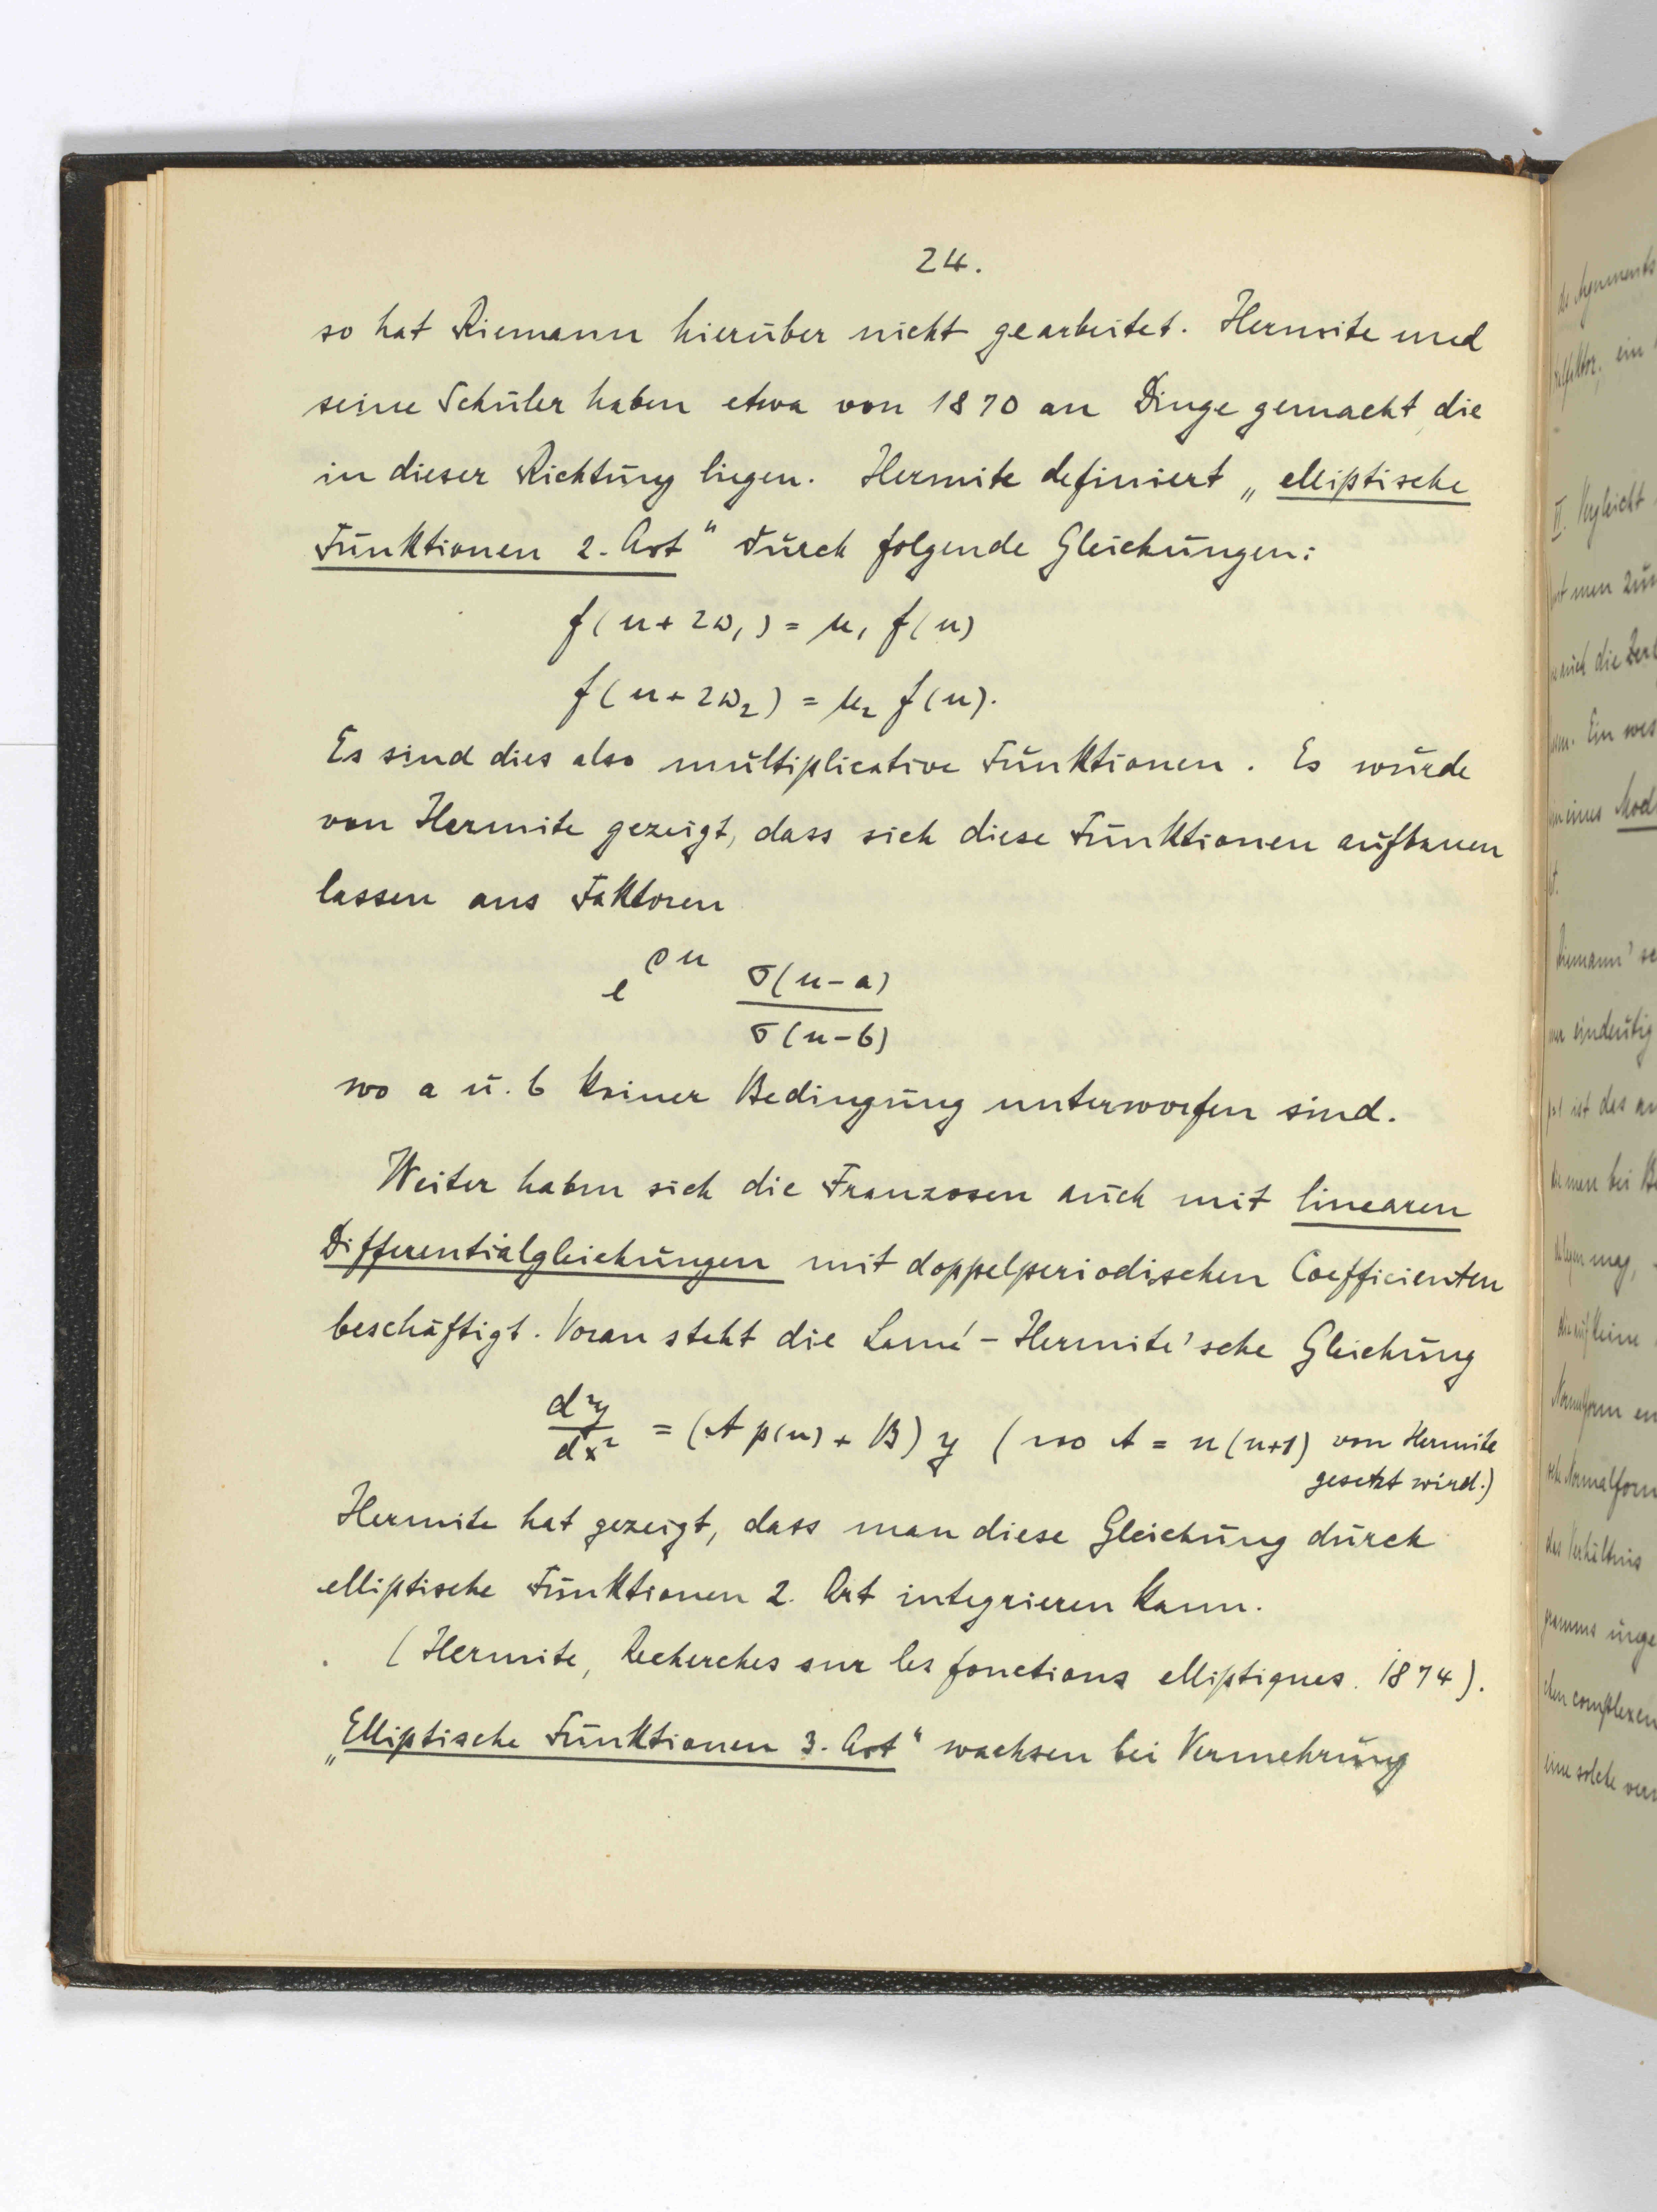 24.
so hat Riemann hierüber nicht gearbeitet. Hermite und
seine Schüler haben etwa von 1870 an Dinge gemacht, die
in dieser Richtung liegen. Hermite definiert „elliptische
Funktionen 2. Art" durch folgende Gleichungen:
f(u+2ω₁) = μ₁ f(u)
f(u+2ω₂) = μ₂ f(u).
Es sind dies also multiplicative Funktionen. Es wurde
von Hermite gezeigt, dass sich diese Funktionen aufbauen
lassen aus Faktoren
e^{cu} σ(u-a)/σ(u-b)
wo a u. b keiner Bedingung unterworfen sind.
Weiter haben sich die Franzosen auch mit linearen
Differentialgleichungen mit doppelperiodischen Coefficienten
beschäftigt. Voran steht die Lamé-Hermite'sche Gleichung
d²y/dx² = (A p(u) + B) y (wo A = n(n+1) von Hermite
gesetzt wird.)
Hermite hat gezeigt, dass man diese Gleichung durch
elliptische Funktionen 2. Art integrieren kann.
(Hermite, Recherches sur les fonctions elliptiques. 1874).
„Elliptische Funktionen 3. Art" wachsen bei Vermehrung
des Arguments
ein
II. Vergleicht
man
auch die
Ein
eines Mod
Riemann'
eindeutig
ist das
man bei
mag,
keine
Normalform
Normalform
das Verhältnis
complexen
eine solche